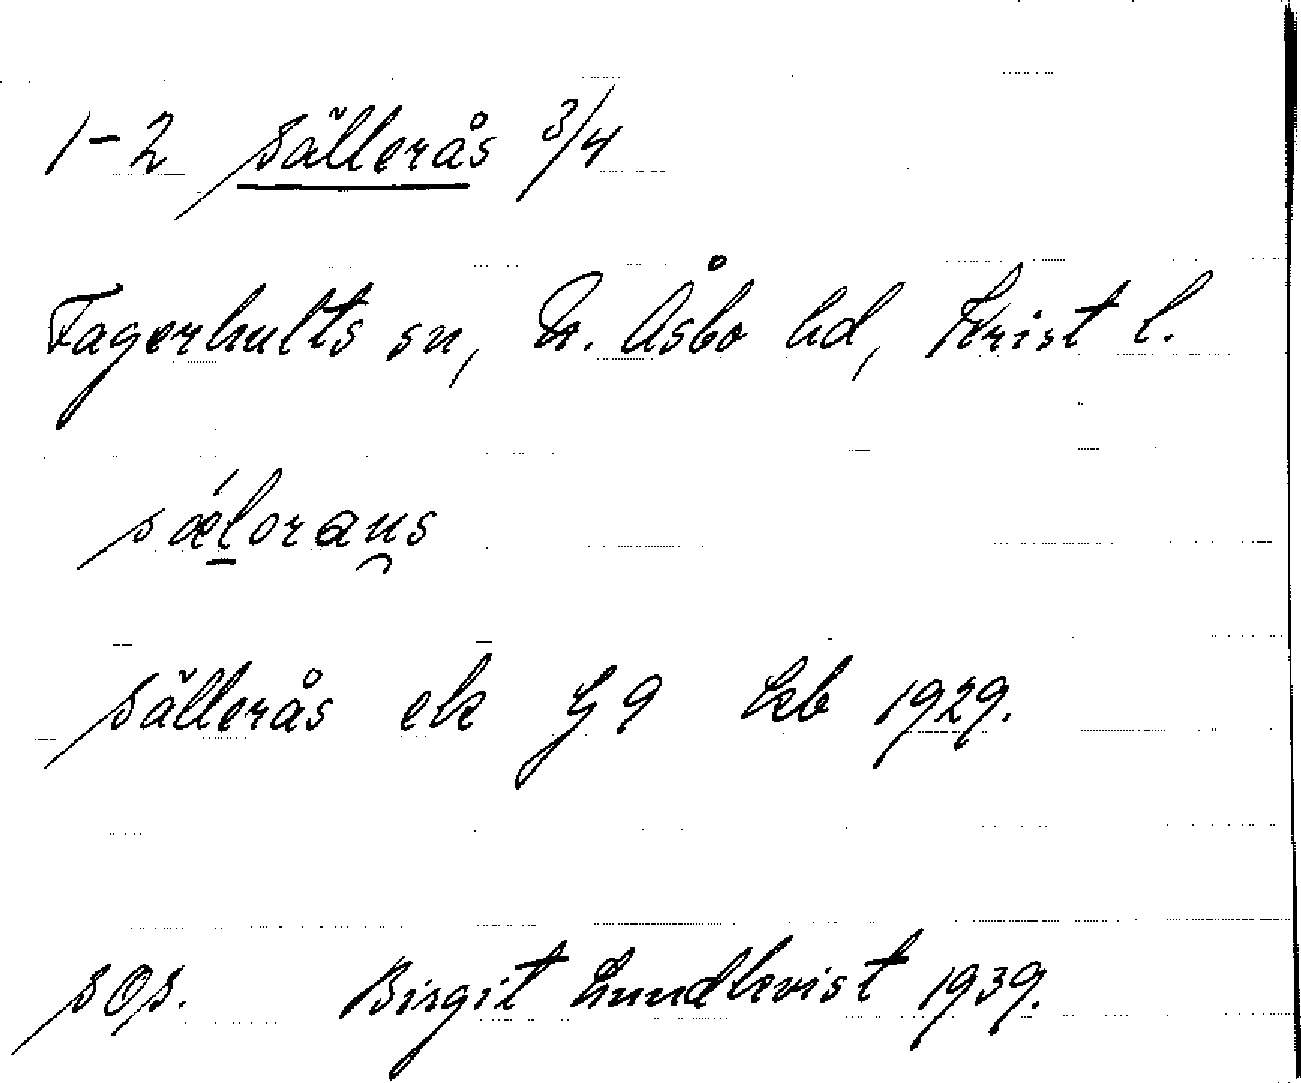 1-2 Sällerås 3/4
Fagerhults sn, N. Åsbo hd, Krist l.
sǽloraus
Sällerås ek G9 kb 1929.
SOS. Birgit Lundkvist 1939.